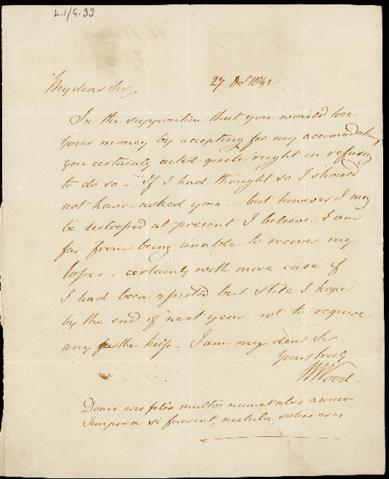 L.1/G.33
27 Oct 1841
My dear Sir,
In the supposition that you would lose
your money by accepting for my accomodation,
you certainly acted quite right in refusing
to do so. If I had thought so I should
not have asked you - but however I may
be distressed at present I believe I am
far from being unable to recover my
losses - certainly with more ease if
I had been assisted but still I hope
by the end of next year not to require
any further help. I am my dear Sir
Yours truly
Wood
Donec eris felix multos numerabis amicos
Tempora si fuerint nubila, solus eris